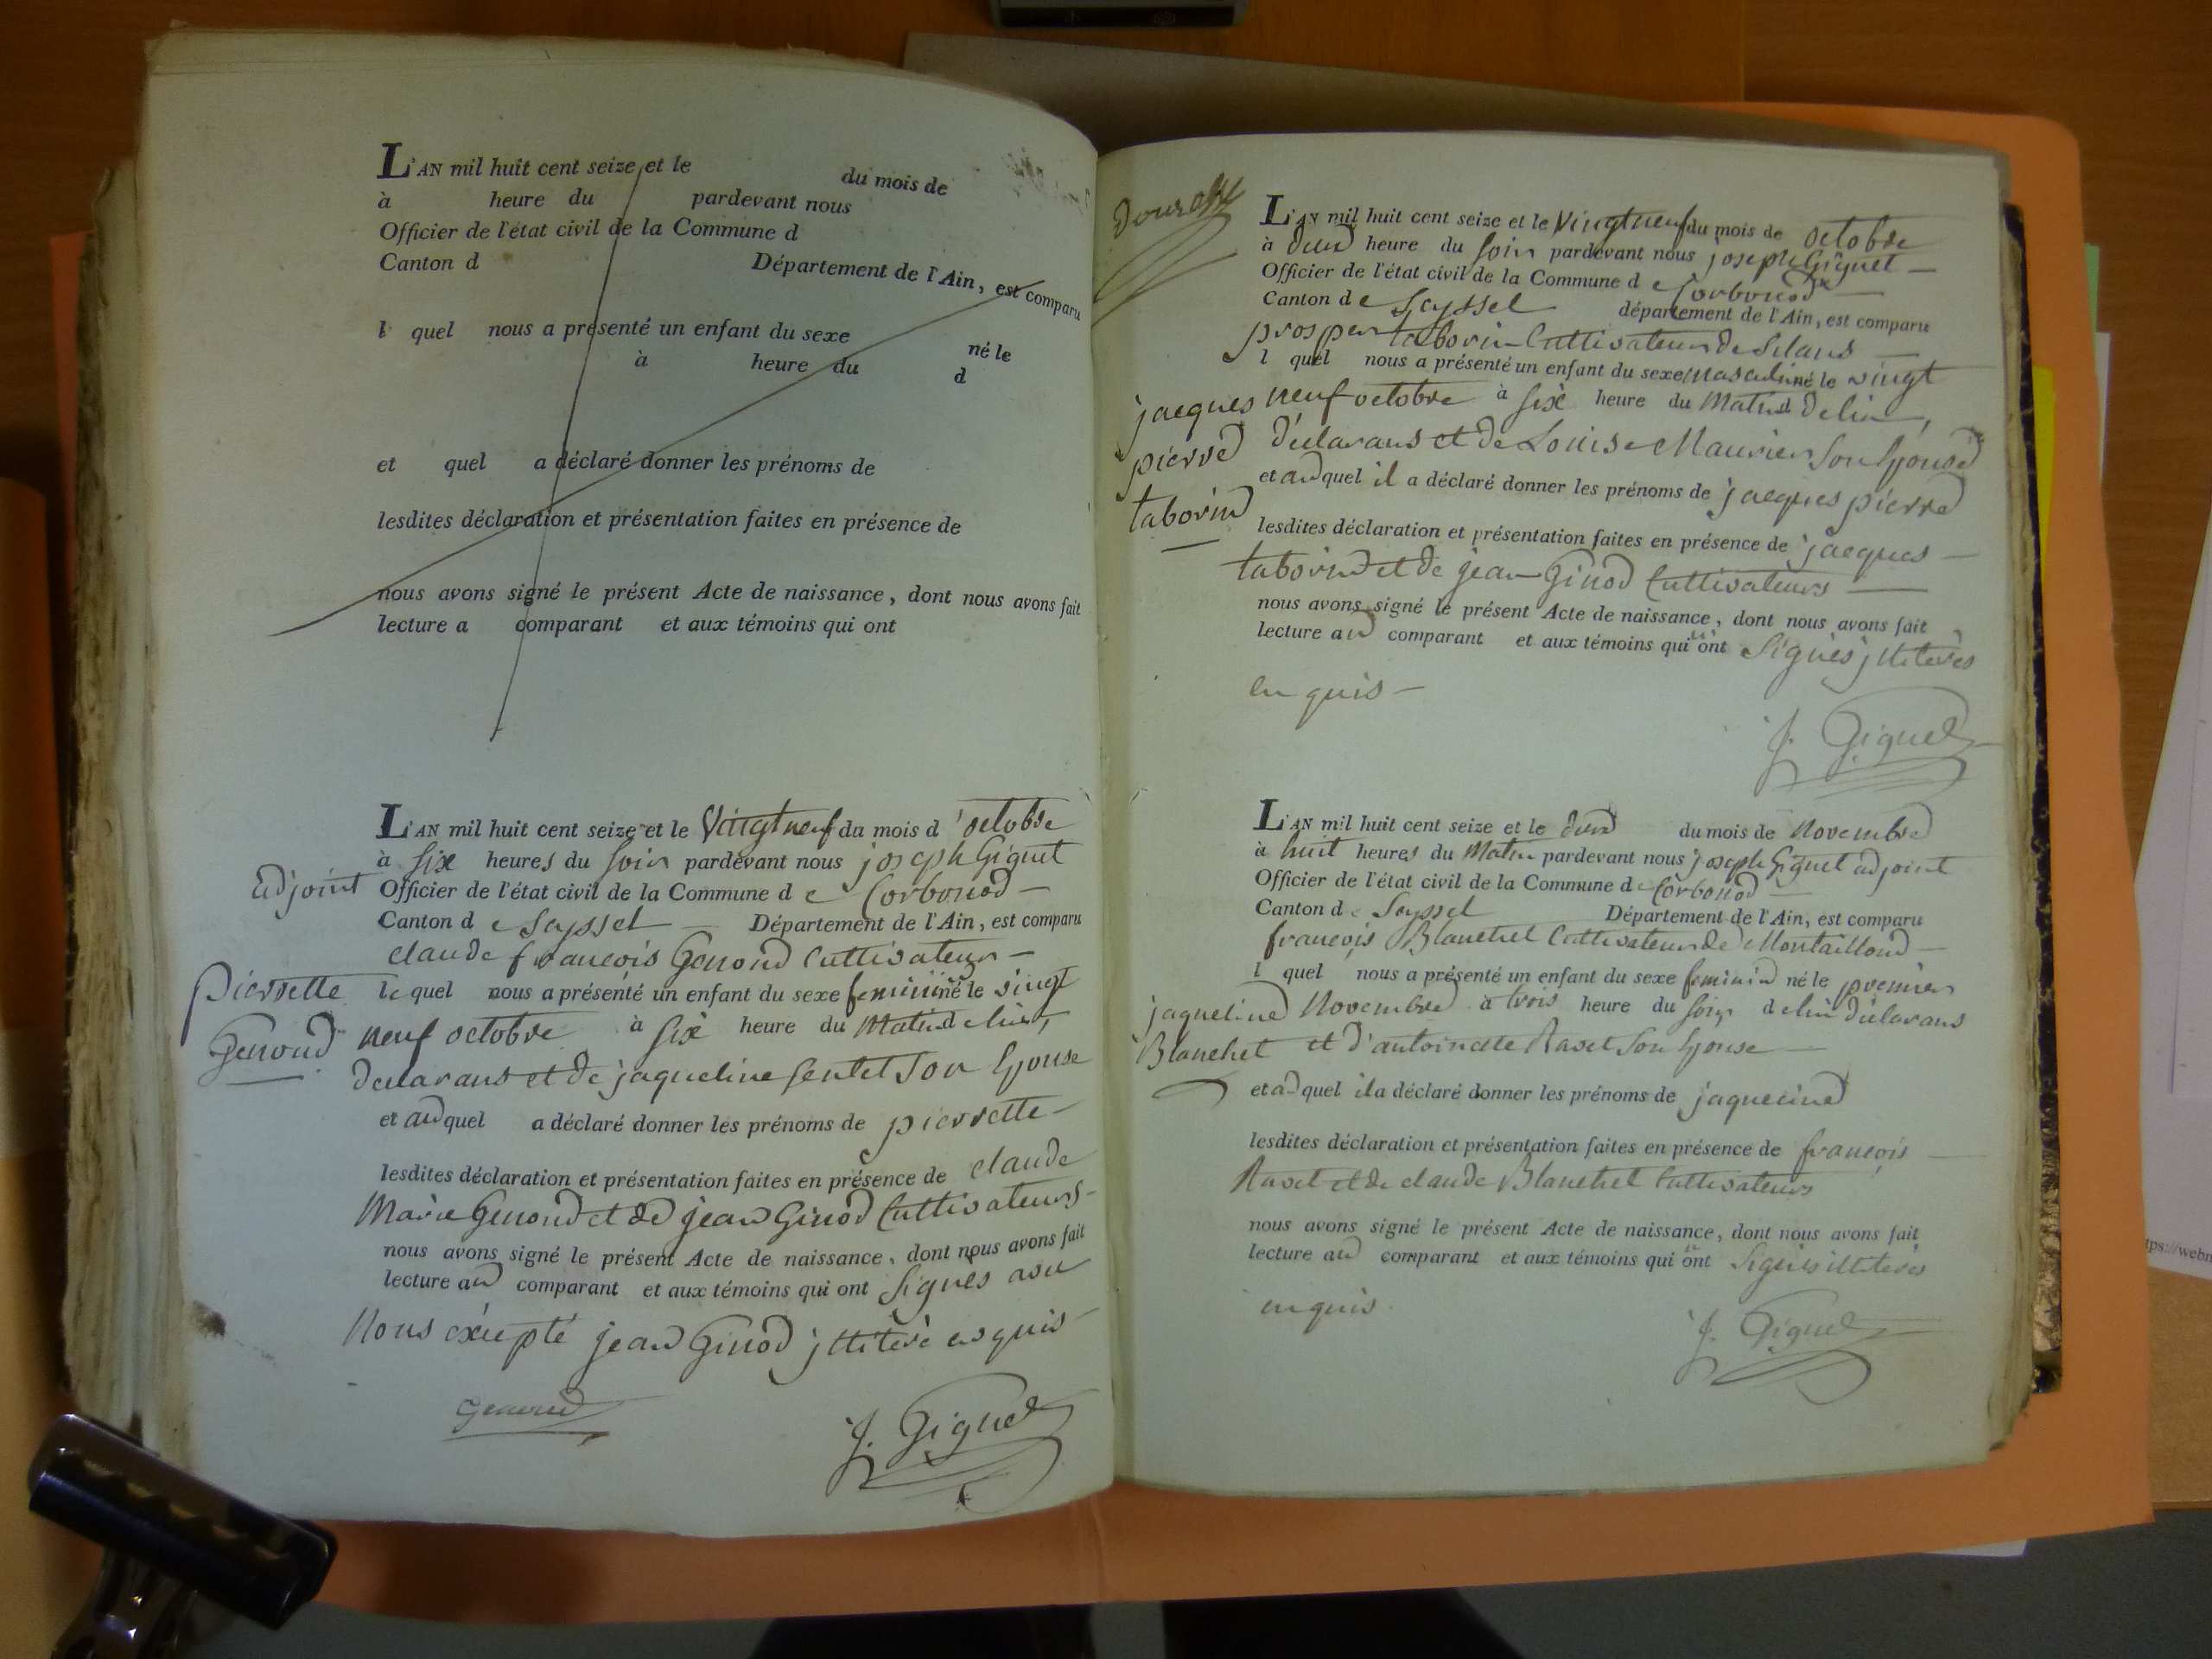 L'AN mil huit cent seize et le du mois de
à heure du pardevant nous
Officier de l'état civil de la Commune d
Canton d Département de l'Ain, est comparu
l quel nous a présenté un enfant du sexe né le
à heure du d
et quel a déclaré donner les prénoms de
lesdites déclaration et présentation faites en présence de
nous avons signé le présent Acte de naissance, dont nous avons fait
lecture a comparant et aux témoins qui ont
L'AN mil huit cent seize et le Vingt neuf du mois d'octobre
à six heures du soir pardevant nous joseph Giguet
adjoint Officier de l'état civil de la Commune de Corbonod
Canton de Seyssel Département de l'Ain, est comparu
claude francois Genoud Cultivateur
Pierrette
Genoud
le quel nous a présenté un enfant du sexe feminin né le vingt
neuf octobre à six heure du Matin de lui,
declarans et de jaqueline sentet son Epouse
et au quel a déclaré donner les prénoms de pierrette
lesdites déclaration et présentation faites en présence de claude
Marie Genoud et de jean Ginod Cultivateurs
nous avons signé le présent Acte de naissance, dont nous avons fait
lecture au comparant et aux témoins qui ont Signès avec
Nous éxcepté jean Ginod jlliterè enquis
Genoud
J. Giguet
L'AN mil huit cent seize et le Vingt neuf du mois de octobre
à deux heure du soir pardevant nous joseph Giguet
Officier de l'état civil de la Commune de Corbonod
Canton de Seyssel département de l'Ain, est comparu
prosper taborin Cultivateur de Silans
l quel nous a présenté un enfant du sexe masculin né le vingt
jacques
pierre
taborin
neuf octobre à six heure du Matin De lui,
déclarans et de Louise Maurier son Epouse
et au quel il a déclaré donner les prénoms de jacques pierre
lesdites déclaration et présentation faites en présence de jacques
taborin et de jean Ginod Cultivateurs
nous avons signé le présent Acte de naissance, dont nous avons fait
lecture au comparant et aux témoins qui n'ont Signès jlliterès
enquis
J. Giguet
L'AN mil huit cent seize et le deux du mois de Novembre
à huit heures du Matin pardevant nous joseph Giguet adjoint
Officier de l'état civil de la Commune de Corbonod
Canton de Seyssel Département de l'Ain, est comparu
françois Blanchet Cultivateur de Montailloud
l quel nous a présenté un enfant du sexe feminin né le premier
jaqueline
Blanchet
Novembre à trois heure du soir de lui déclarans
et d'antoinette Ravet son Epouse
et au quel il a déclaré donner les prénoms de jaqueline
lesdites déclaration et présentation faites en présence de françois
Ravet et de claude Blanchet Cultivateurs
nous avons signé le présent Acte de naissance, dont nous avons fait
lecture au comparant et aux témoins qui n'ont Signès illiterès
enquis
J. Giguet